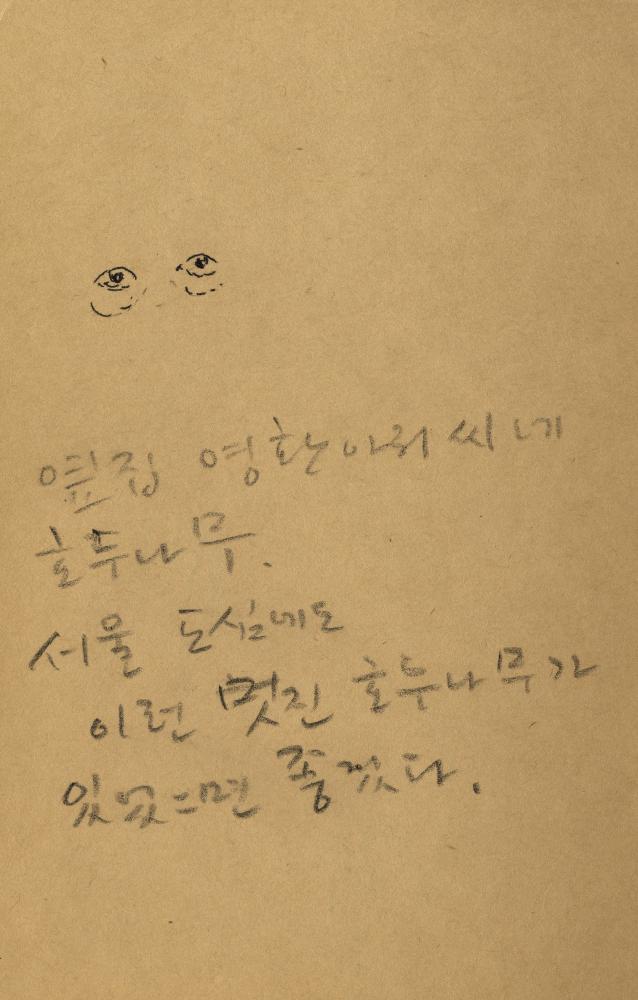 옆집 영환아줘씨네
호두나무.
서울 도심에도
이런 멋진 호두나무가
있었으면 좋겠다.